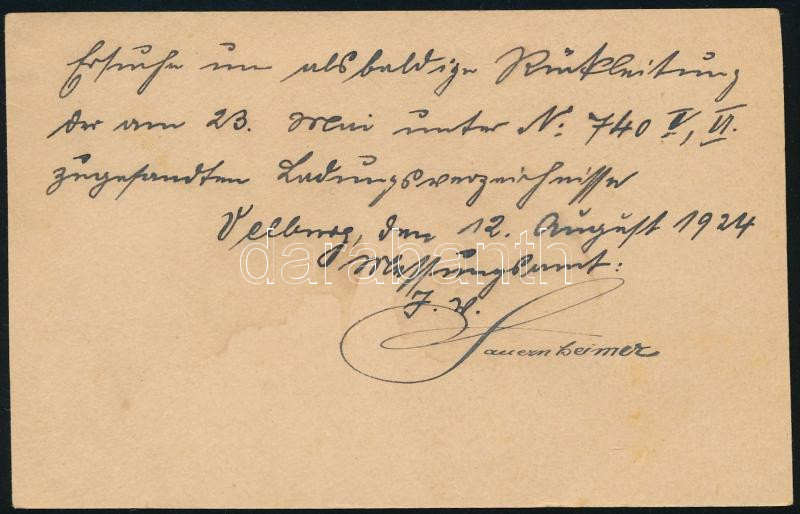 Ersuche um alsbaldige Rückleitung
der am 23. Mai unter N: 740 V, VI.
zugesandten Ladungsverzeichnisse
Velburg, den 12. August 1924
Messungsamt:
J. V.
Sauernheimer
darabanth.com